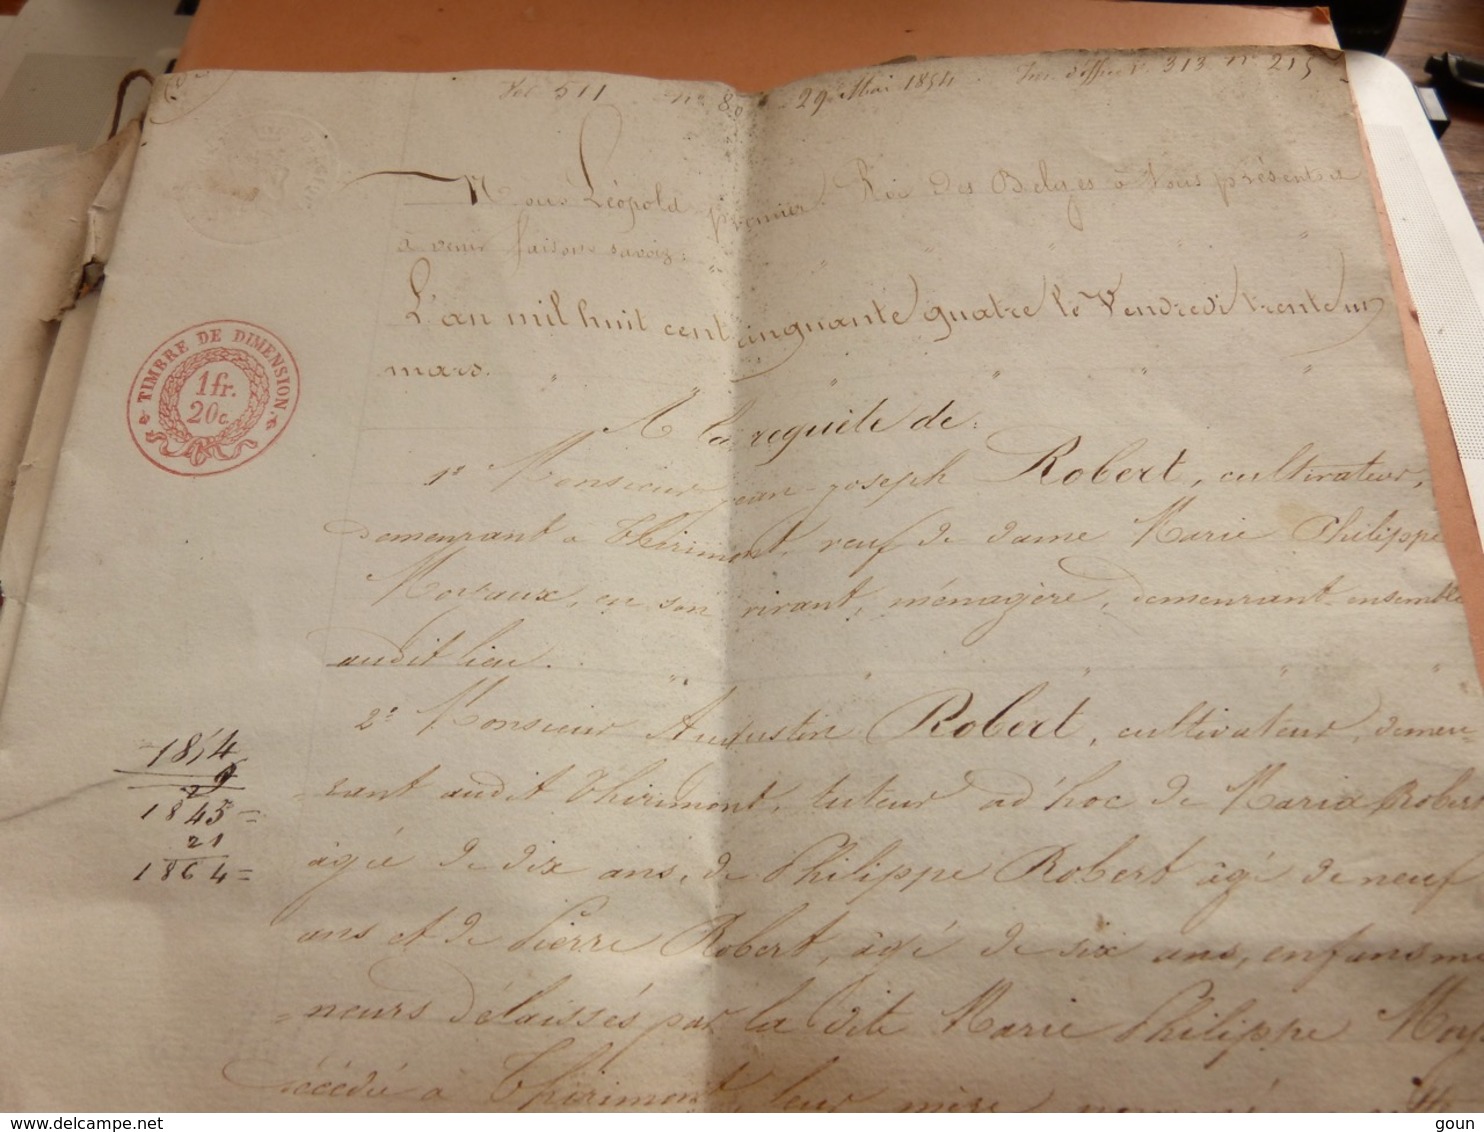 Vol 511 n° 80 29 Mai 1854 313 n° 215
Nous Léopold premier Roi des Belges à tous présents et
à venir faisons savoir :
L'an mil huit cent cinquante quatre le Vendredi trente un
mars.
A la requête de :
TIMBRE DE DIMENSION.
1 fr.
20 c.
1° Monsieur Jean-Joseph Robert, cultivateur,
demeurant à Thirimont, veuf de dame Marie Philippe
Moyaux, en son vivant, ménagère, demeurant ensemble
audit lieu.
2° Monsieur Augustin Robert, cultivateur, demeu-
-rant audit Thirimont, tuteur ad'hoc de Maria Robert
âgée de dix ans, de Philippe Robert âgé de neuf
ans et de Pierre Robert, âgé de six ans, enfans mi
-neurs délaissés par la dite Marie Philippe Moy
décédée à Thirimont, leur mère, nommé
1854
9
1845=
21
1864=
goun